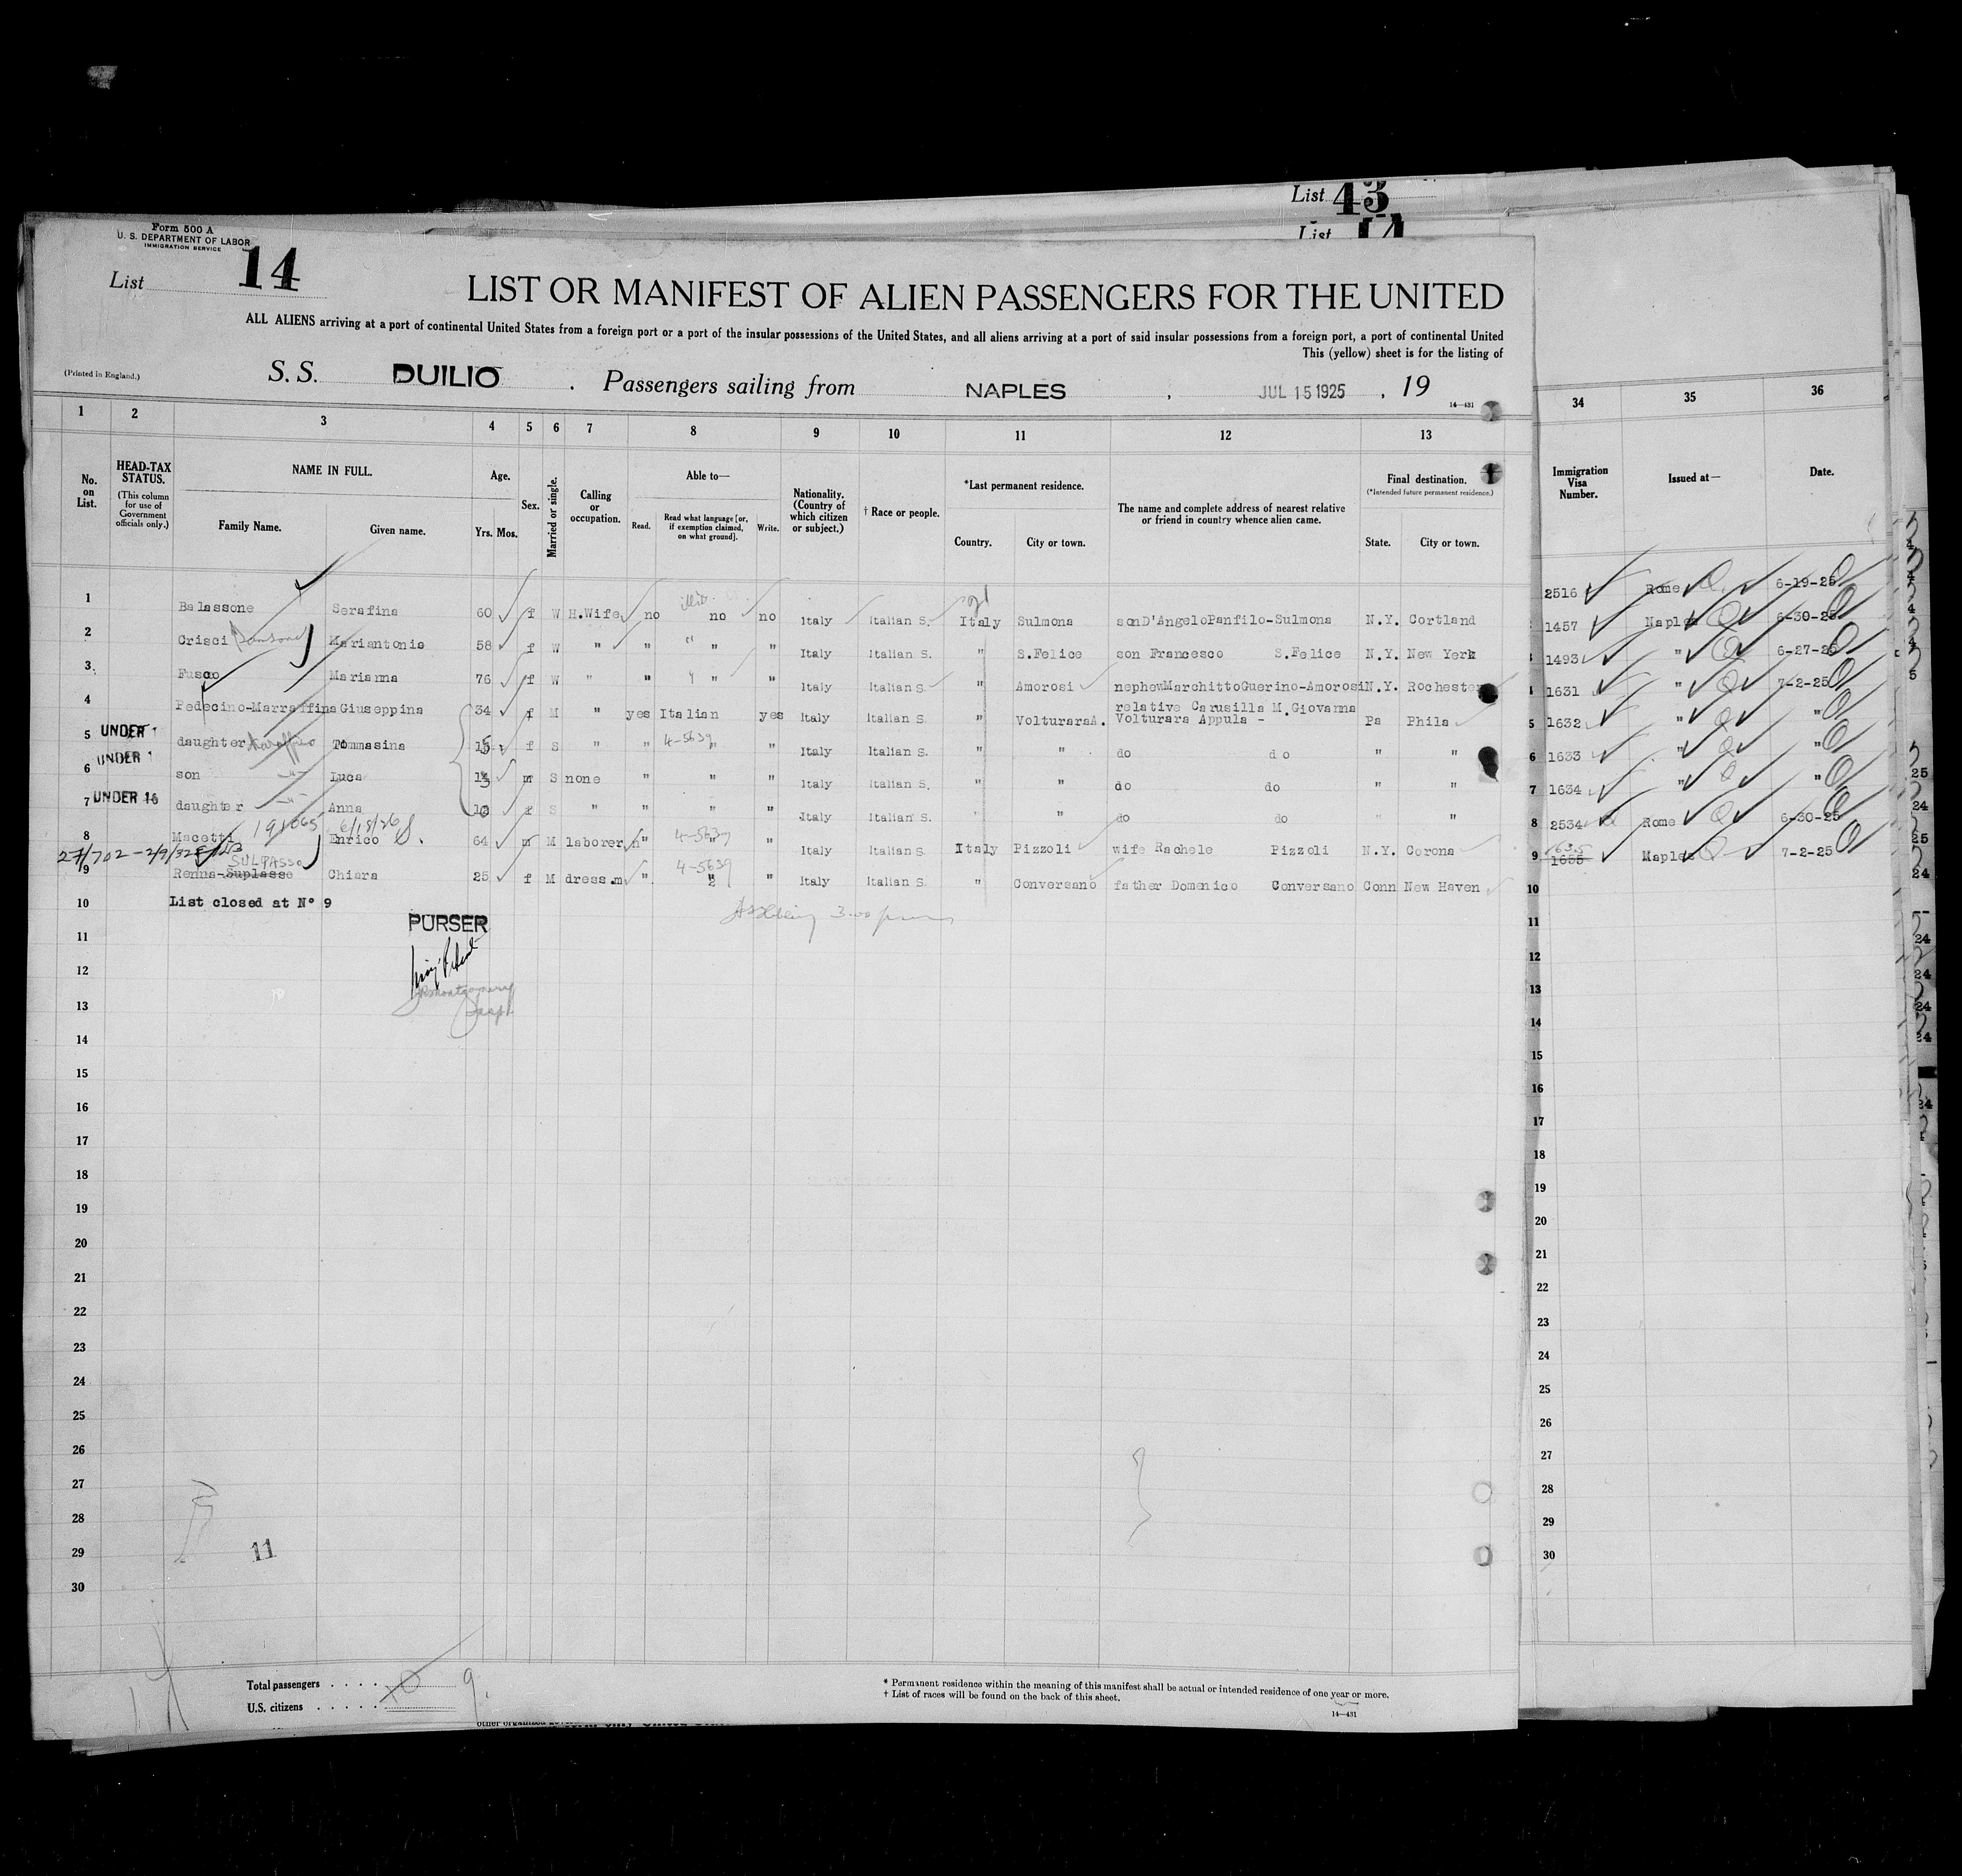 List 43
List 14
Form 500 A
U. S. DEPARTMENT OF LABOR
IMMIGRATION SERVICE
List 14
LIST OR MANIFEST OF ALIEN PASSENGERS FOR THE UNITED
ALL ALIENS arriving at a port of continental United States from a foreign port or a port of the insular possessions of the United States, and all aliens arriving at a port of said insular possessions from a foreign port, a port of continental United
This (yellow) sheet is for the listing of
(Printed in England.)
S. S. DUILIO . Passengers sailing from NAPLES , JUL 15 1925 , 19
14—431
1 2 3 4 5 6 7 8 9 10 11 12 13 34 35 36
No. on List.
HEAD-TAX STATUS.
(This column for use of Government officials only.)
NAME IN FULL.
Family Name. Given name.
Age.
Yrs. Mos.
Sex.
Married or single.
Calling or occupation.
Able to—
Read. Read what language [or, if exemption claimed, on what ground]. Write.
Nationality. (Country of which citizen or subject.)
† Race or people.
*Last permanent residence.
Country. City or town.
The name and complete address of nearest relative or friend in country whence alien came.
Final destination.
(*Intended future permanent residence.)
State. City or town.
Immigration Visa Number.
Issued at—
Date.
1 Balassone Serafina 60 f W H.Wife no no no Italy Italian S. Italy Sulmona sonD'AngeloPanfilo-Sulmona N.Y. Cortland 2516 Rome 6-19-25
2 Crisci Mariantonia 58 f W " " " " Italy Italian S. " S.Felice son Francesco S.Felice N.Y. New York 1457 Naples 6-30-25
3 Fusco Marianna 76 f W " " " " Italy Italian S. " Amorosi nephewMarchittoGuerino-Amorosi N.Y. Rochester 1493 " 6-27-25
4 Pedecino-Marraffina Giuseppina 34 f M " yes Italian yes Italy Italian S. " VolturaraA. relative Carusilla M.Giovanna Volturara Appula - Pa Phila 1631 " 7-2-25
UNDER
5 daughter Tommasina f S " " 4-5639 " " Italy Italian S. " " do do " " 1632 " "
UNDER
6 son Luca m S none " " " Italy Italian S. " " do do " " 1633 " "
UNDER 16
7 daughter Anna f S " " " " Italy Italian S. " " do do " " 1634 " "
191065 6/18/26
8 Macetti Enrico 64 m M laborer " 4-5639 " " Italy Italian S. Italy Pizzoli wife Rachele Pizzoli N.Y. Corona 2534 Rome 6-30-25
27/702-2/9/32
SULPASSO
9 Renna-Suplasse Chiara 25 f M dress.m " 4-5639 " " Italy Italian S. " Conversano father Domenico Conversano Conn New Haven 1635 1655 Naples 7-2-25
10 List closed at N° 9
PURSER
11
12
13
14
15
16
17
18
19
20
21
22
23
24
25
26
27
28
29
30
11
Total passengers . . . . 10 9.
U.S. citizens . . . . .
* Permanent residence within the meaning of this manifest shall be actual or intended residence of one year or more.
† List of races will be found on the back of this sheet.
14—431